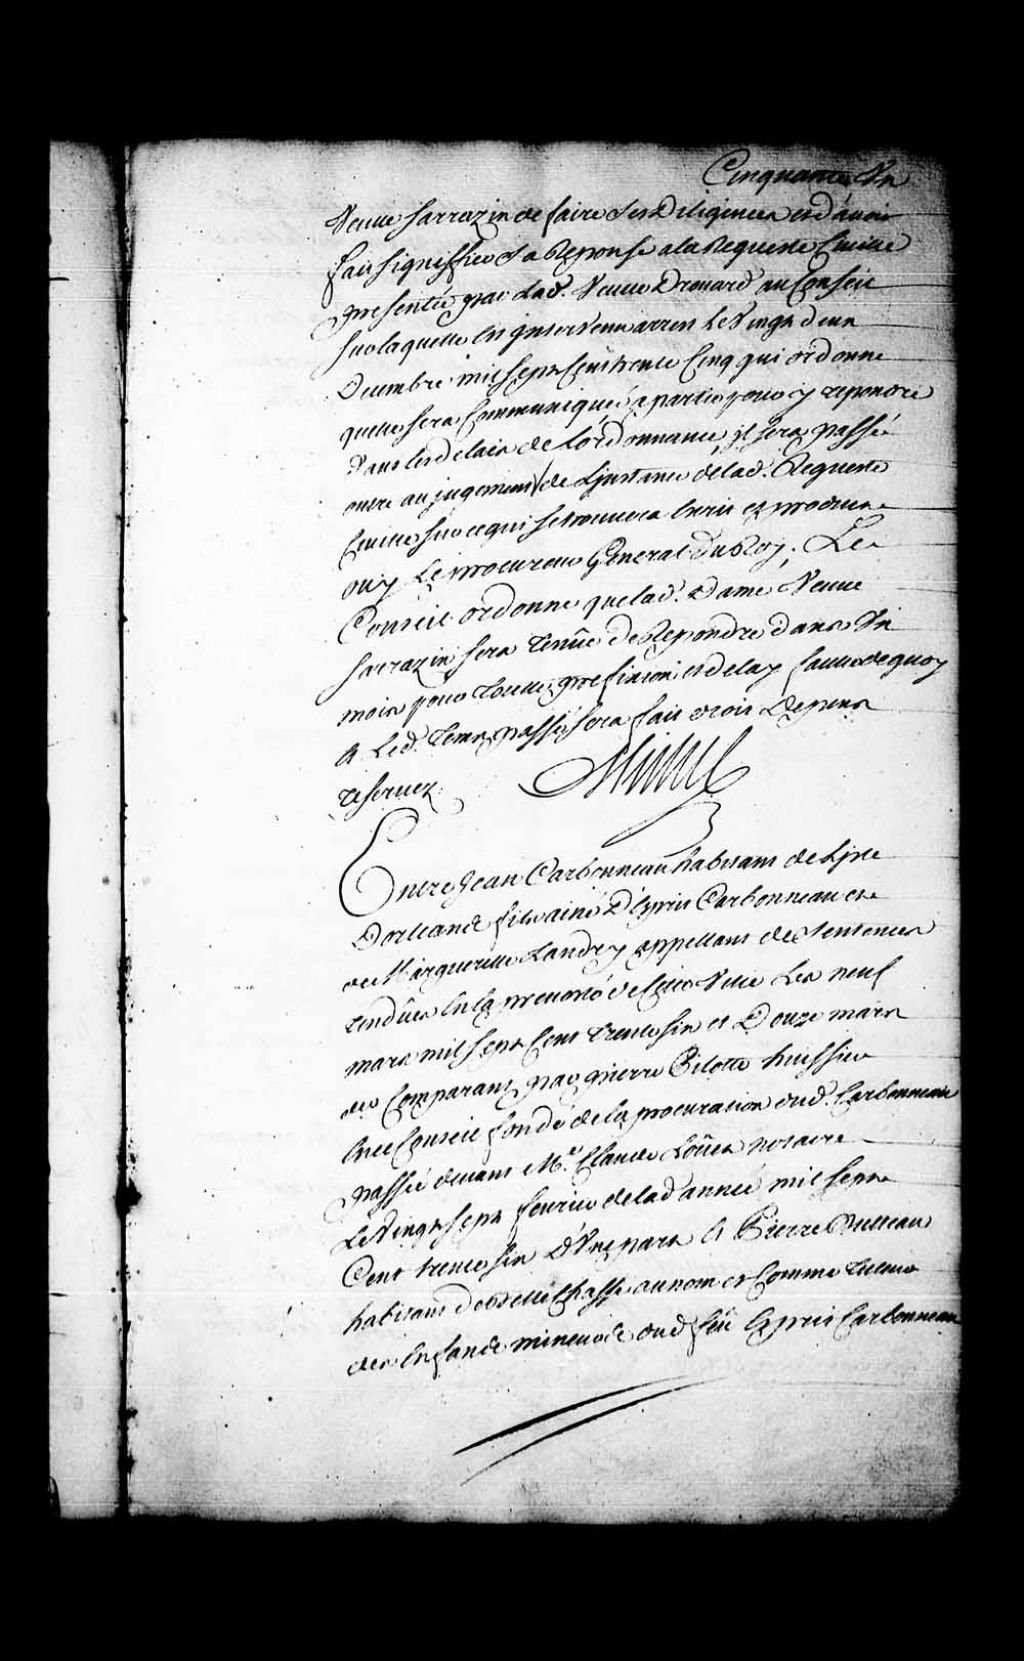 Cinquante Un
Veuve Sarrazin de faire ses Diligences et d'avoir
fait signiffier sa Réponse a la Requeste Civille
presentée par lad. Veuve Drouard au Conseil
sur laquelle est intervenu arrest le Vingt deux
Decembre mil sept Cent trente Cinq qui ordonne
quelle sera Communiquée a partie pour y repondre
dans les delais de l'ordonnance, il sera passé
outre au jugement de Linstance de lad. Requeste
Civille sur ce qui se trouvera Ecrit et produit
ouy Le procureur General du Roy; Le
Conseil ordonne que lad. Dame Veuve
Sarrazin sera tenüe de Repondre dans Un
mois pour toutte prefixion et delay faute de quoy
Et led. tems passé sera fait droit Depens
reservez.
Entre Jean Carbonneau habitant de Lisle
Dorleans fils ainé D'Esprit Carbonneau et
de Marguerite Landry appellant des Sentences
rendües En la prevosté de Cette Ville Les neuf
mars mil sept Cent trente six et Douze mars
Comparant par pierre Bilotte huissier
En ce Conseil fondé de la procuration dud. Carbonneau
passée devant Me. Claude Loüet notaire
Le Vingt sept fevrier de lad année mil sept
Cent trente six D'Une part Et Pierre
habitant de Bellechasse au nom et Comme tuteur
des Enfans mineurs dud feu Esprit Carbonneau